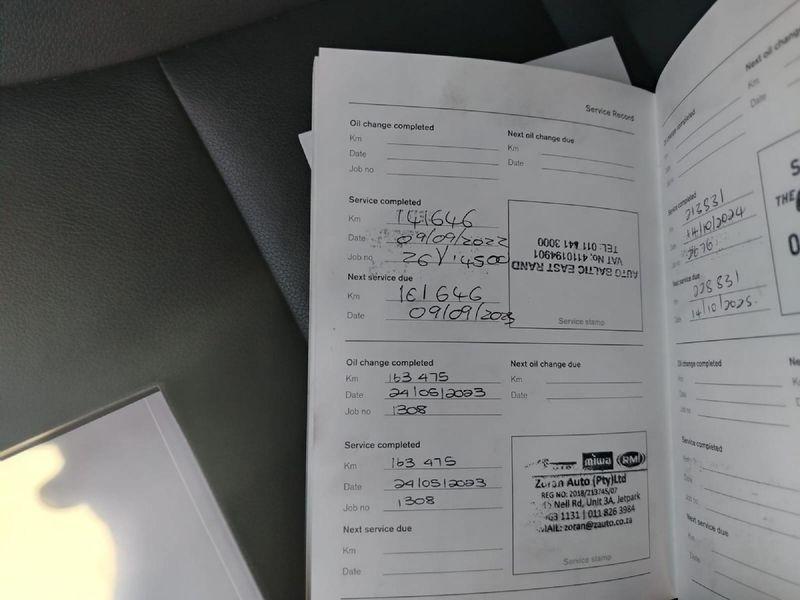 Service Record
Oil change completed
Next oil change due
Km
Km
Date
Date
Job no
Service completed
Km 141646
Date 09/09/2022
Job no
AUTO BALTIC EAST RAND
VAT No: 4110194901
TEL: 011 841 3000
Next service due
Km 161646
Date 09/09/2023
Service stamp
Oil change completed
Next oil change due
Km 163 475
Km
Date 24/05/2023
Date
Job no 1308
Service completed
Km 163 475
Date 24/05/2023
Job no 1308
miwa RMI
Zoran Auto (Pty)Ltd
REG NO: 2018/213745/07
Nell Rd, Unit 3A, Jetpark
1131 | 011 826 3984
zoran@zauto.co.za
Next service due
Km
Date
Service stamp
Next oil change
Km
Date
Oil change completed
Service completed
213831
14/10/2024
2676
THE
Next service due
228831
14/10/2025
Oil change completed
Km
Date
Job no
Service completed
Km
Date
Job no
Next service due
Km
Date